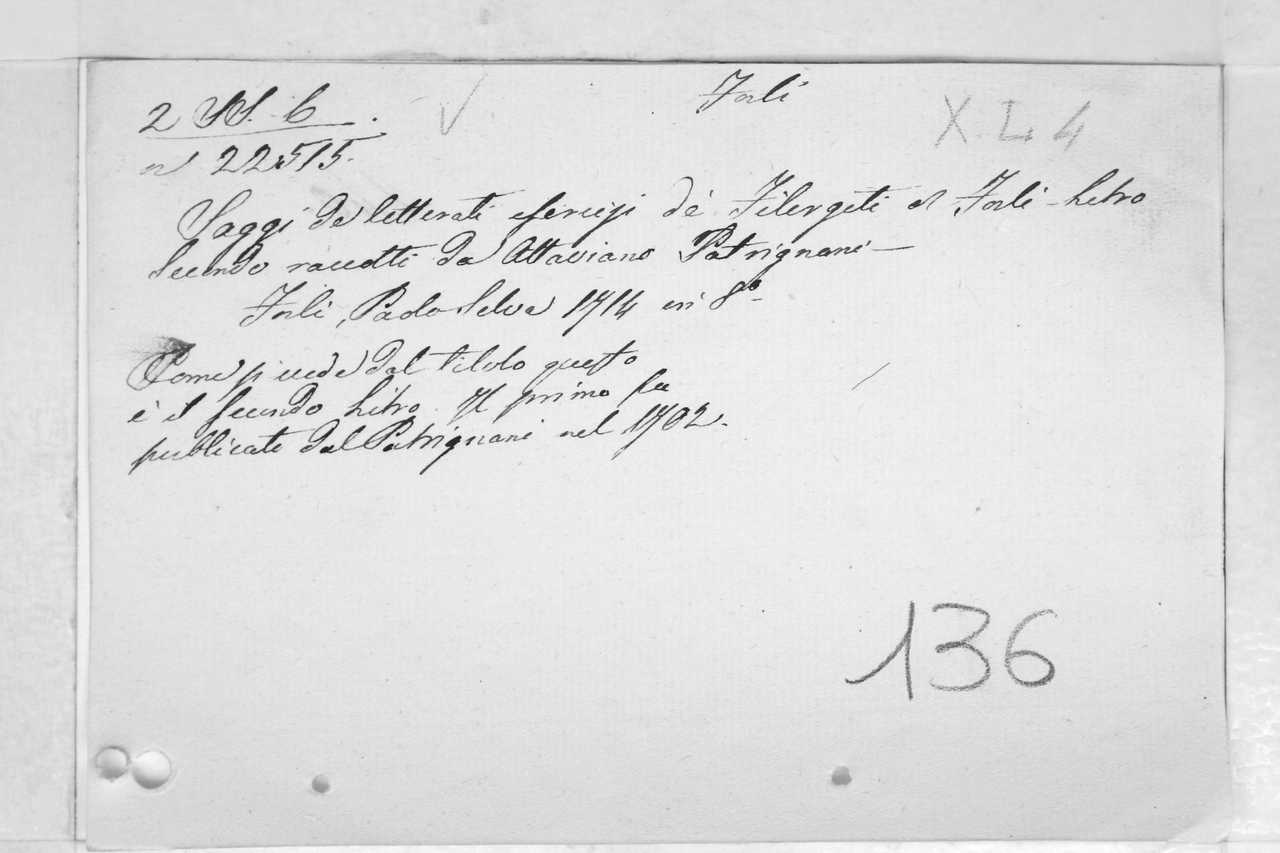 Forlì
X. L. 4
2 b
n° 22515.
Saggi de letterati esercizj de' Filergiti di Forlì - Libro
Secondo raccolti da Ottaviano Patrignani —
Forlì, Paolo Selva 1714 in 8°-
Come si vede dal titolo questo
è il secondo Libro. Il primo fu
pubblicato dal Patrignani nel 1702.
136